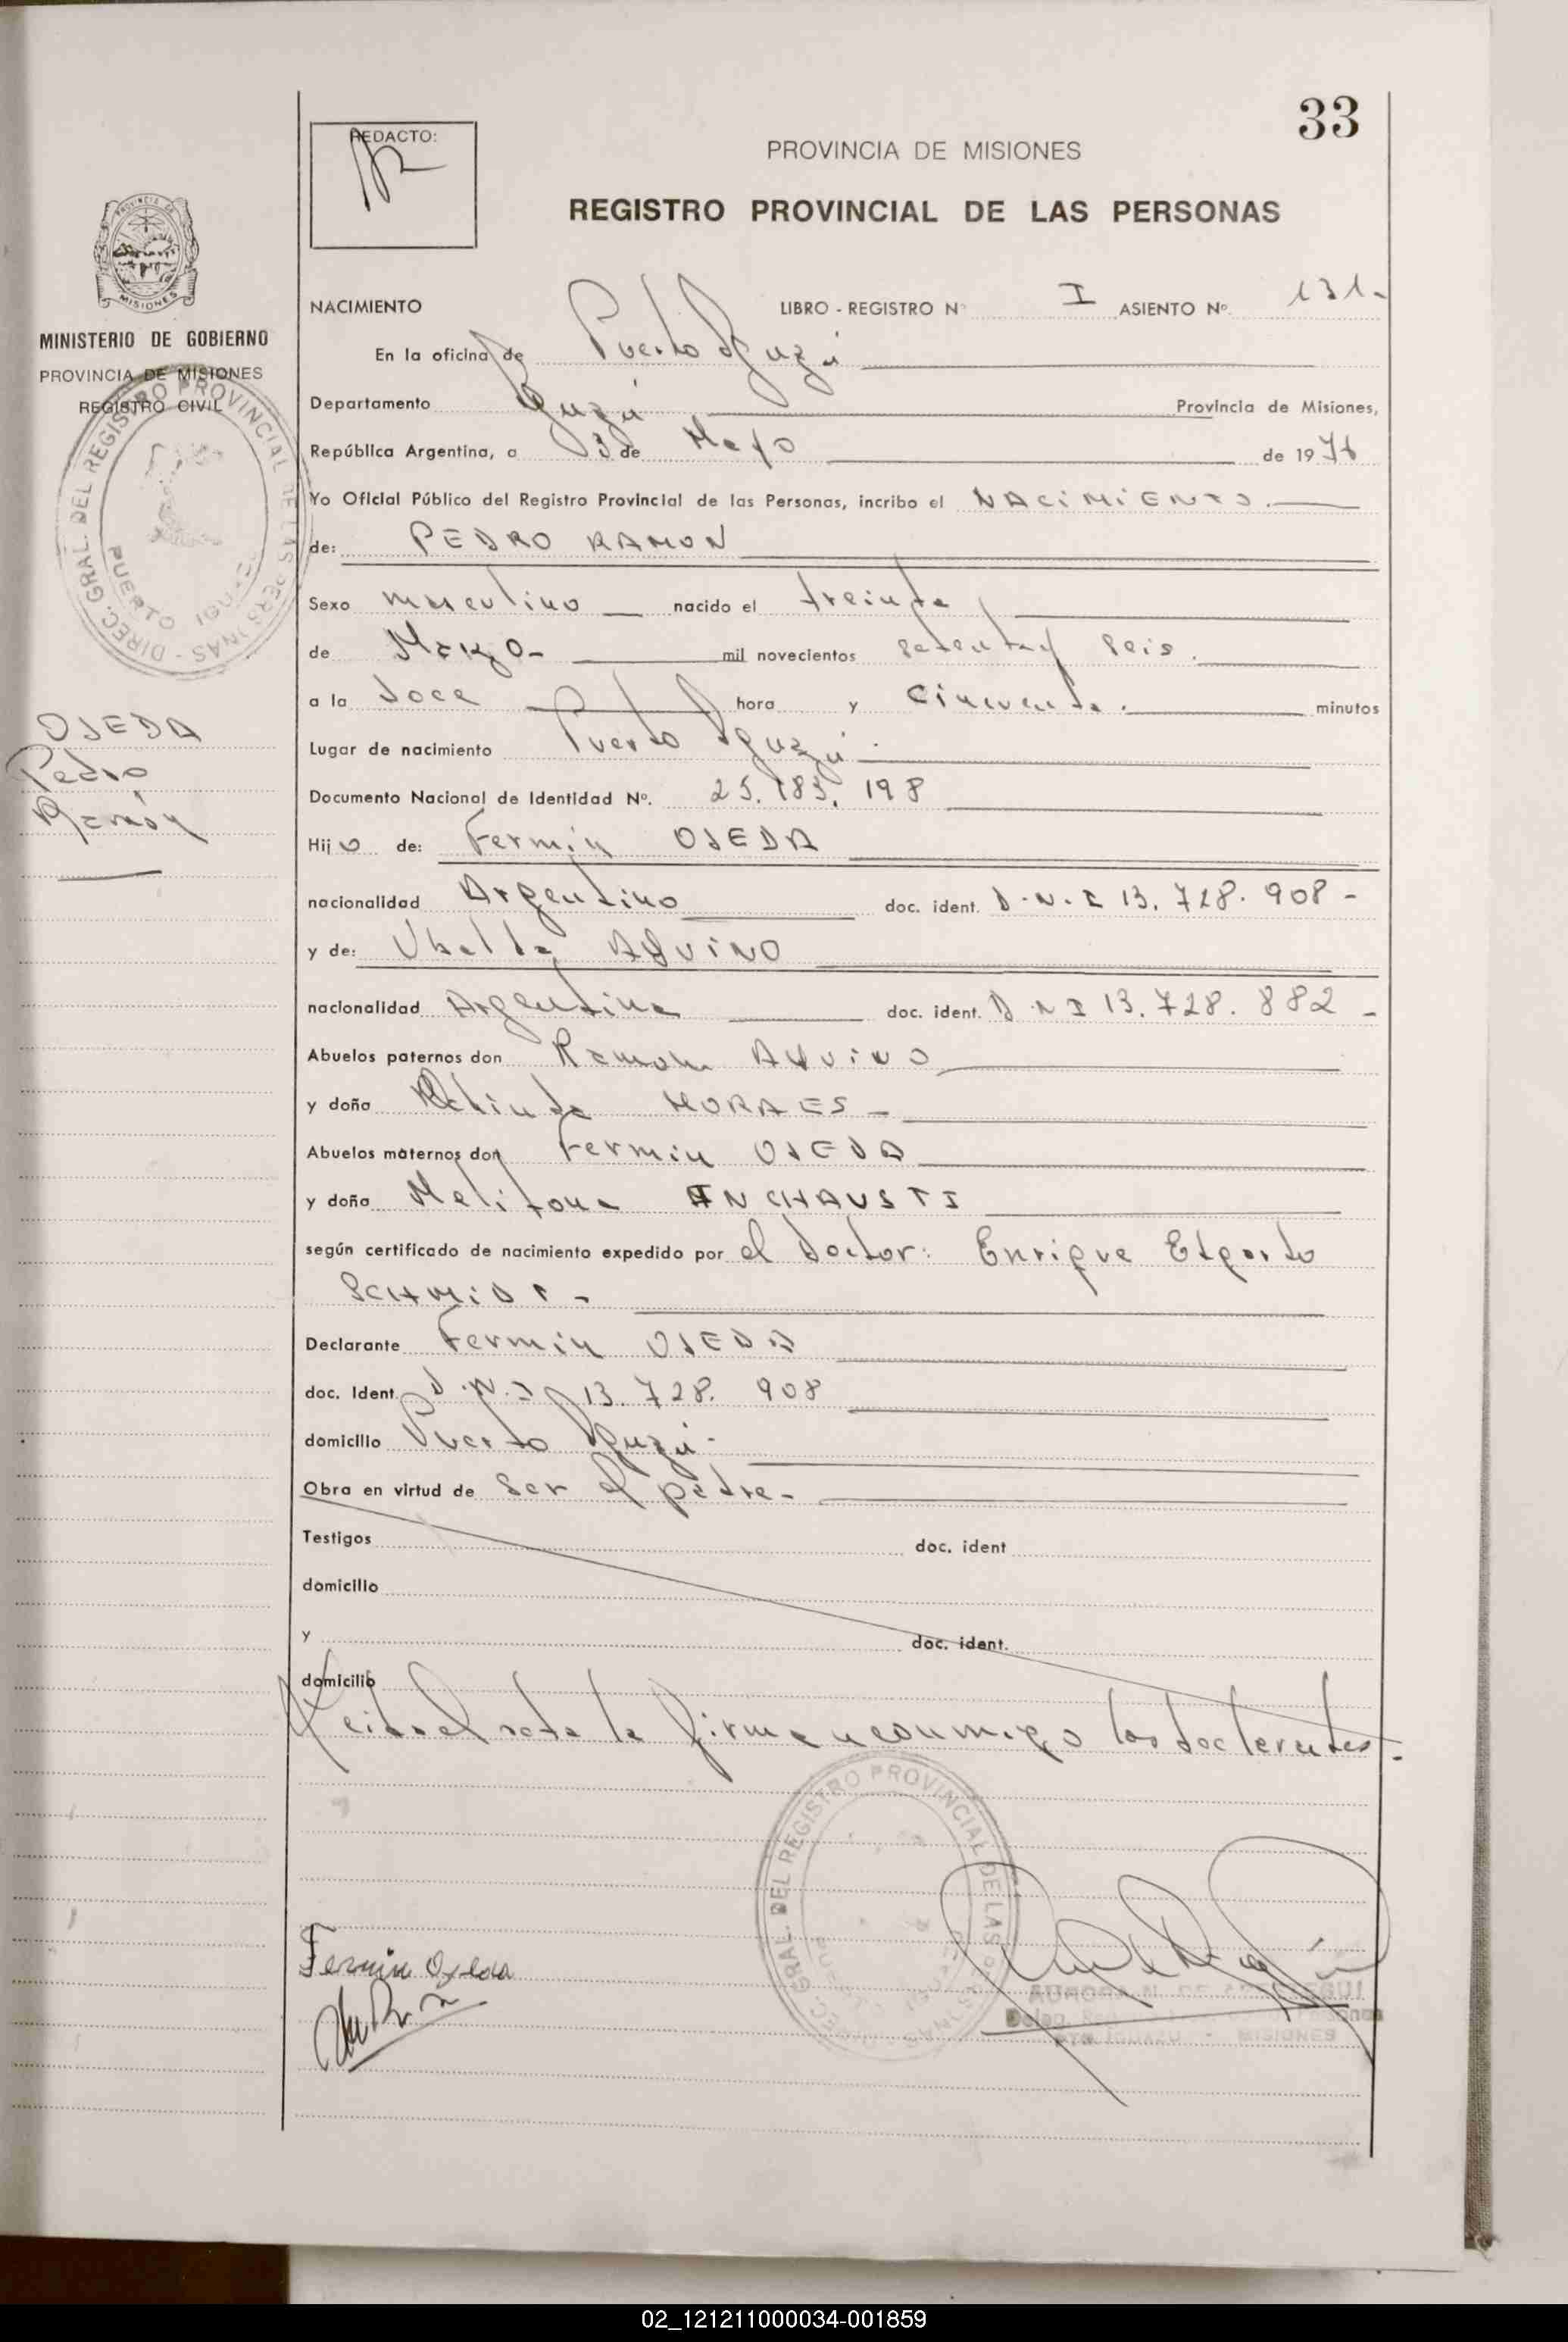 33
REDACTO:
PROVINCIA DE MISIONES
REGISTRO PROVINCIAL DE LAS PERSONAS
MISIONES
MINISTERIO DE GOBIERNO
PROVINCIA DE MISIONES
REGISTRO CIVIL
DIREC. GRAL. DEL REGISTRO PROVINCIAL DE LAS PERSONAS - PUERTO IGUAZU
OJEDA
Pedro
Ramón
NACIMIENTO LIBRO - REGISTRO Nº I ASIENTO Nº 131-
En la oficina de Puerto Iguazú
Departamento Iguazú Provincia de Misiones,
República Argentina, a 3 de Mayo de 1976
Yo Oficial Público del Registro Provincial de las Personas, incribo el NACIMIENTO.
de: PEDRO RAMON
Sexo masculino nacido el treinta
de Marzo- mil novecientos setenta y seis.
a la doce hora y cincuenta. minutos
Lugar de nacimiento Puerto Iguazú.
Documento Nacional de Identidad Nº. 25.183.198
Hijo de: Fermín OJEDA
nacionalidad Argentino doc. ident. D.N.I 13.728.908-
y de: Ubalda AQUINO
nacionalidad Argentina doc. ident. D N I 13.728.882-
Abuelos paternos don Ramon AQUINO
y doña MORAES-
Abuelos maternos don Fermin OJEDA
y doña Melitona INCHAUSTI
según certificado de nacimiento expedido por el Doctor: Enrique Edgardo
SCHMIDT-
Declarante Fermin OJEDA
doc. Ident. D.N.I 13.728.908
domicilio Puerto Iguazú-
Obra en virtud de ser el padre-
Testigos doc. ident
domicilio
y doc. ident.
domicilio
Leida el acta la firman conmigo los declarantes.
DIREC. GRAL. DEL REGISTRO PROVINCIAL DE LAS PERSONAS
Fermin Ojeda
AURORA
PTO IGUAZU - MISIONES
02_121211000034-001859